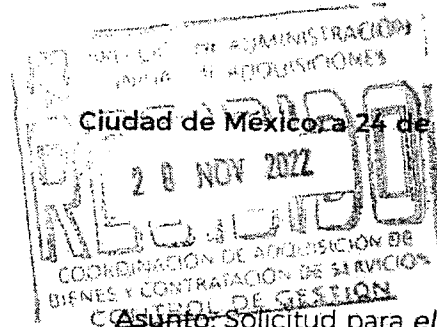 DE ADMINISTRACIÓN
DE ADQUISICIONES
Ciudad de México, a 24 de
RECIBIDO
28 NOV 2022
COORDINACIÓN DE ADQUISICIÓN DE
BIENES Y CONTRATACIÓN DE SERVICIOS
CONTROL DE GESTIÓN
Asunto: Solicitud para el